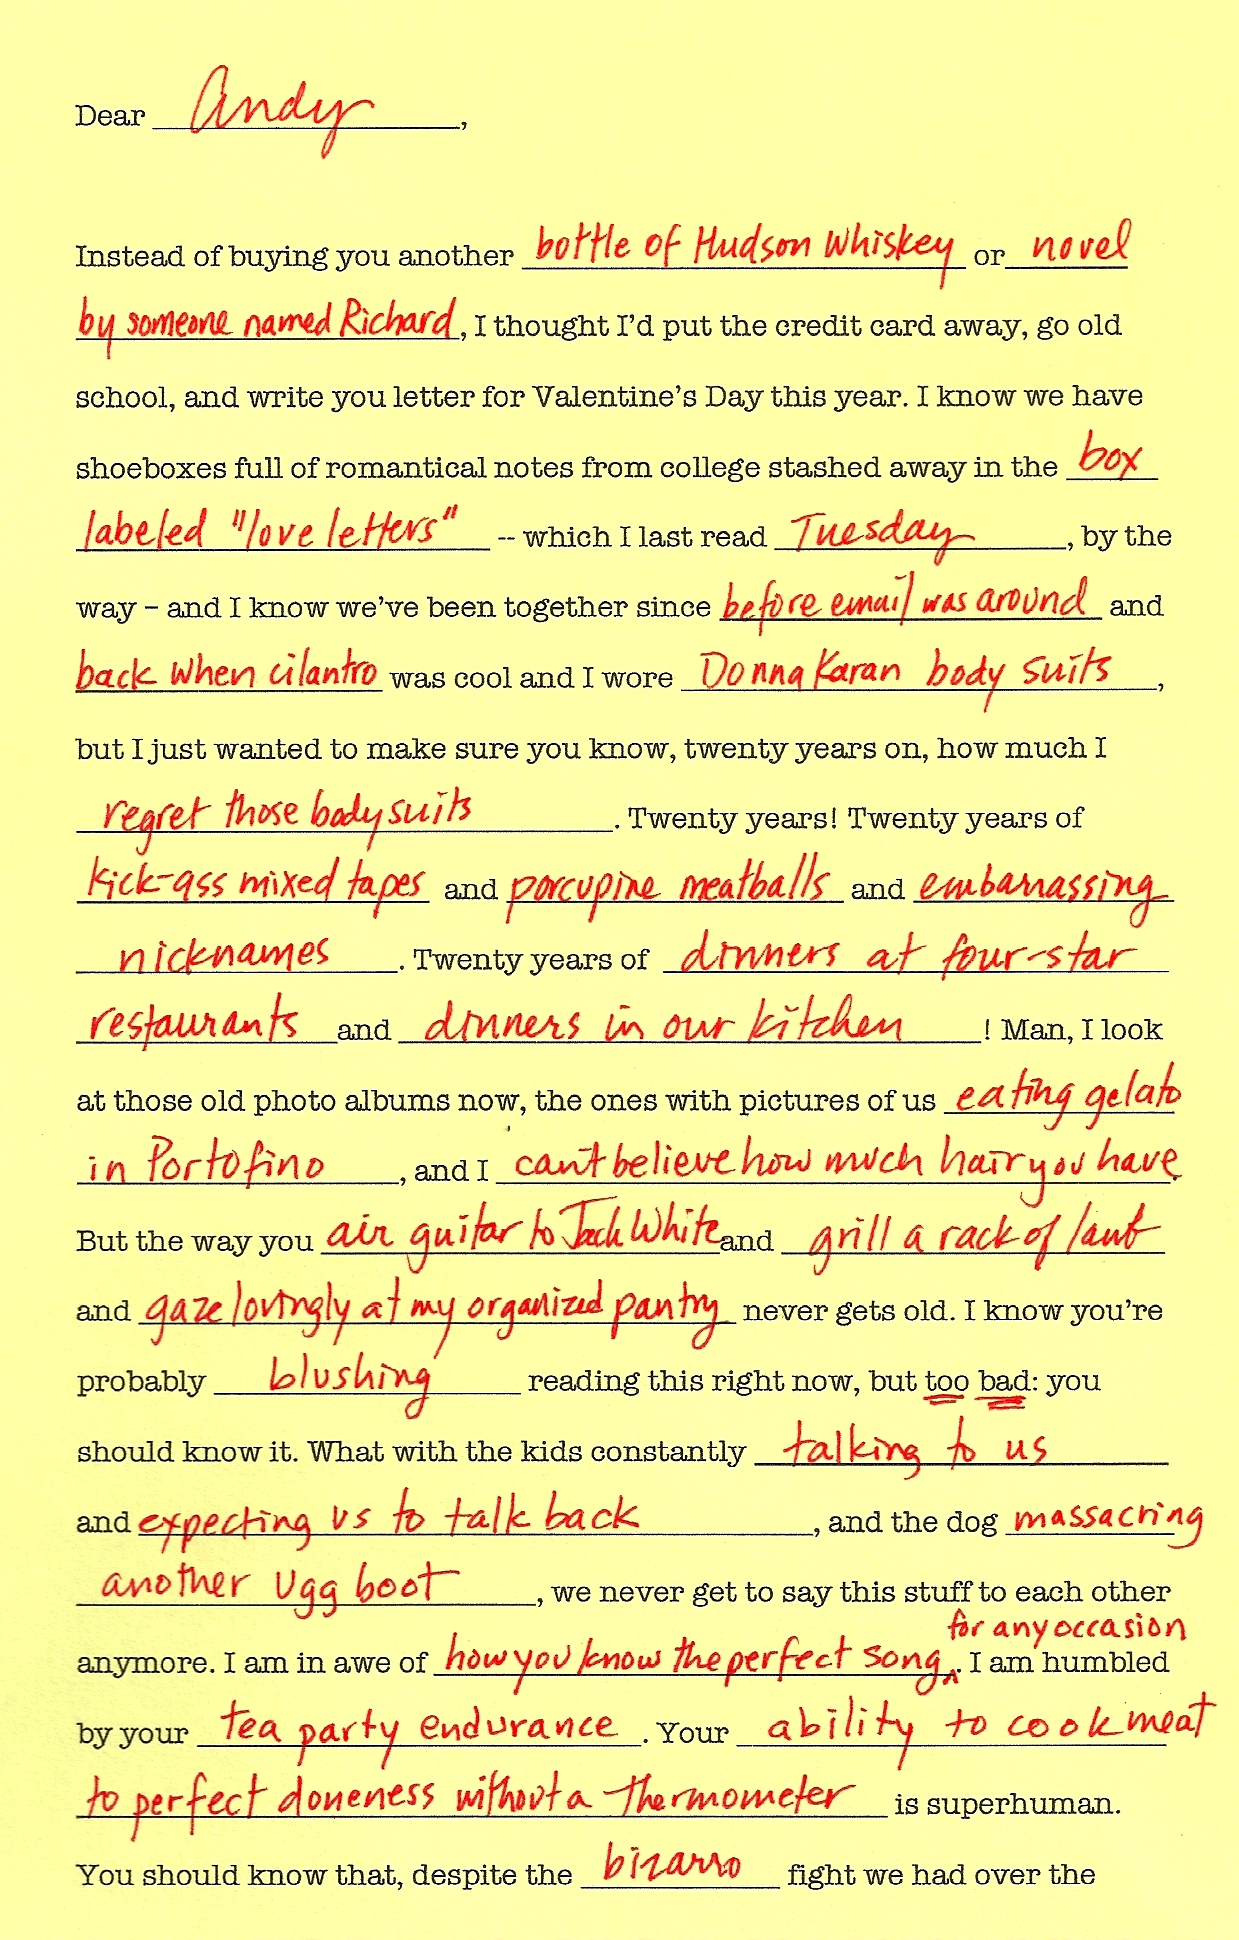 Dear Andy,
Instead of buying you another bottle of Hudson Whiskey or novel
by someone named Richard, I thought I'd put the credit card away, go old
school, and write you letter for Valentine's Day this year. I know we have
shoeboxes full of romantical notes from college stashed away in the box
labeled "love letters" -- which I last read Tuesday, by the
way – and I know we've been together since before email was around and
back when cilantro was cool and I wore Donna Karan body suits,
but I just wanted to make sure you know, twenty years on, how much I
regret those bodysuits. Twenty years! Twenty years of
kick-ass mixed tapes and porcupine meatballs and embarrassing
nicknames. Twenty years of dinners at four-star
restaurants and dinners in our kitchen! Man, I look
at those old photo albums now, the ones with pictures of us eating gelato
in Portofino, and I can't believe how much hair you have.
But the way you air guitar to Jack White and grill a rack of lamb
and gaze lovingly at my organized pantry never gets old. I know you're
probably blushing reading this right now, but too bad: you
should know it. What with the kids constantly talking to us
and expecting us to talk back, and the dog massacring
another Ugg boot, we never get to say this stuff to each other
anymore. I am in awe of how you know the perfect song for any occasion. I am humbled
by your tea party endurance. Your ability to cook meat
to perfect doneness without a thermometer is superhuman.
You should know that, despite the bizarro fight we had over the